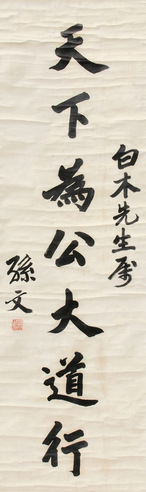 白木先生属
天下為公大道行
孫文